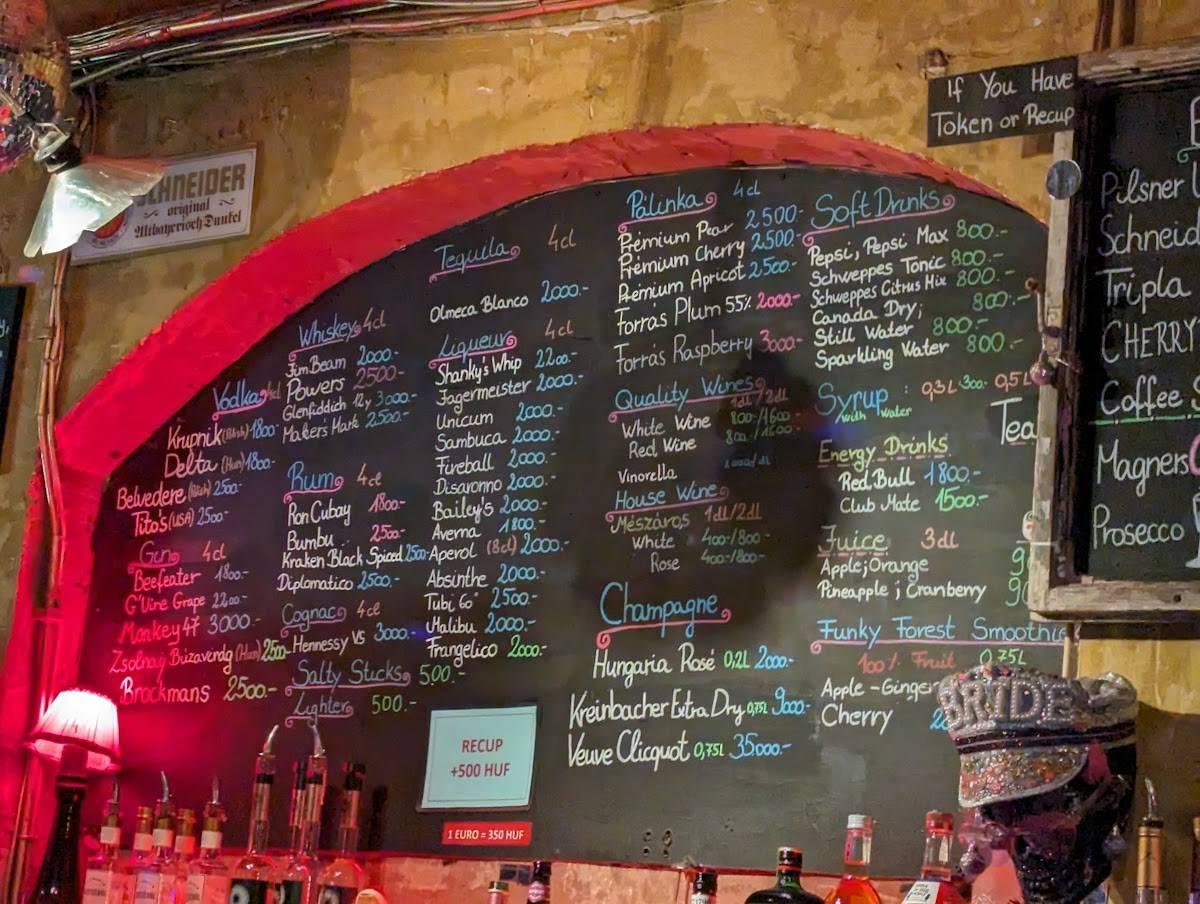 SCHNEIDER
original
Altbayerisch Dunkel
Vodka 4cl
Krupnik (Polish) 1800.-
Delta (Hun) 1800.-
Belvedere (Polish) 2500.-
Tito's (USA) 2500.-
Gin 4cl
Beefeater 1800.-
G'Vine Grape 2200.-
Monkey 47 3000.-
Zsolnay Búzavirág (Hun) 2500.-
Brockmans 2500.-
Whiskey 4cl
Jim Beam 2000.-
Powers 2500.-
Glenfiddich 12y 3000.-
Makers Mark 2500.-
Rum 4cl
Ron Cubay 1800.-
Bumbu 2500.-
Kraken Black Spiced 2500.-
Diplomatico 2500.-
Cognac 4cl
Hennessy VS 3000.-
Salty Sticks 500.-
Lighter 500.-
Tequila 4cl
Olmeca Blanco 2000.-
Liqueur 4cl
Shanky's Whip 2200.-
Jagermeister 2000.-
Unicum 2000.-
Sambuca 2000.-
Fireball 2000.-
Disaronno 2000.-
Bailey's 2000.-
Averna 1800.-
Aperol (8cl) 2000.-
Absinthe 2000.-
Tubi 60° 2500.-
Malibu 2000.-
Frangelico 2000.-
RECUP
+500 HUF
1 EURO = 350 HUF
Pálinka 4cl
Prémium Pear 2.500.-
Prémium Cherry 2.500.-
Prémium Apricot 2.500.-
Torras Plum 55% 2000.-
Torras Raspberry 3000.-
Quality Wines 1dL/2dL
White Wine 800.-/1600.-
Red Wine 800.-/1600.-
Vinorella
House Wine
Mészáros 1dL/2dL
White 400.-/800.-
Rose 400.-/800.-
Champagne
Hungaria Rosé 0,2L 2000.-
Kreinbacher Extra Dry 0,75L 9000.-
Veuve Clicquot 0,75L 35000.-
Soft Drinks
Pepsi, Pepsi Max 800.-
Schweppes Tonic 800.-
Schweppes Citrus Mix 800.-
Canada Dry; 800.-
Still Water 800.-
Sparkling Water 800.-
Syrup : 0,3L 300.- 0,5L
with water
Tea
Energy Drinks
Red Bull 1800.-
Club Mate 1500.-
Juice 3dl
Apple; Orange
Pineapple ; Cranberry
Funky Forest Smoothie
100% Fruit 0,75L
Apple-Ginger
Cherry
BRIDE
If You Have
Token or Recup
Pilsner
Schneid
Tripla
CHERRY
Coffee
Magners
Prosecco